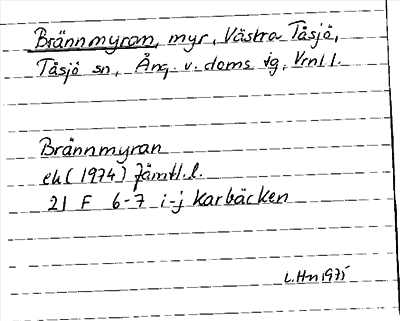 Brännmyran, myr, Västra Tåsjö,
Tåsjö sn, Ång. v. doms tg, Vrnl l.
Brännmyran
ek (1974) Jämtl. l.
21 F 6-7 i-j Karbäcken
L. Hn 1975